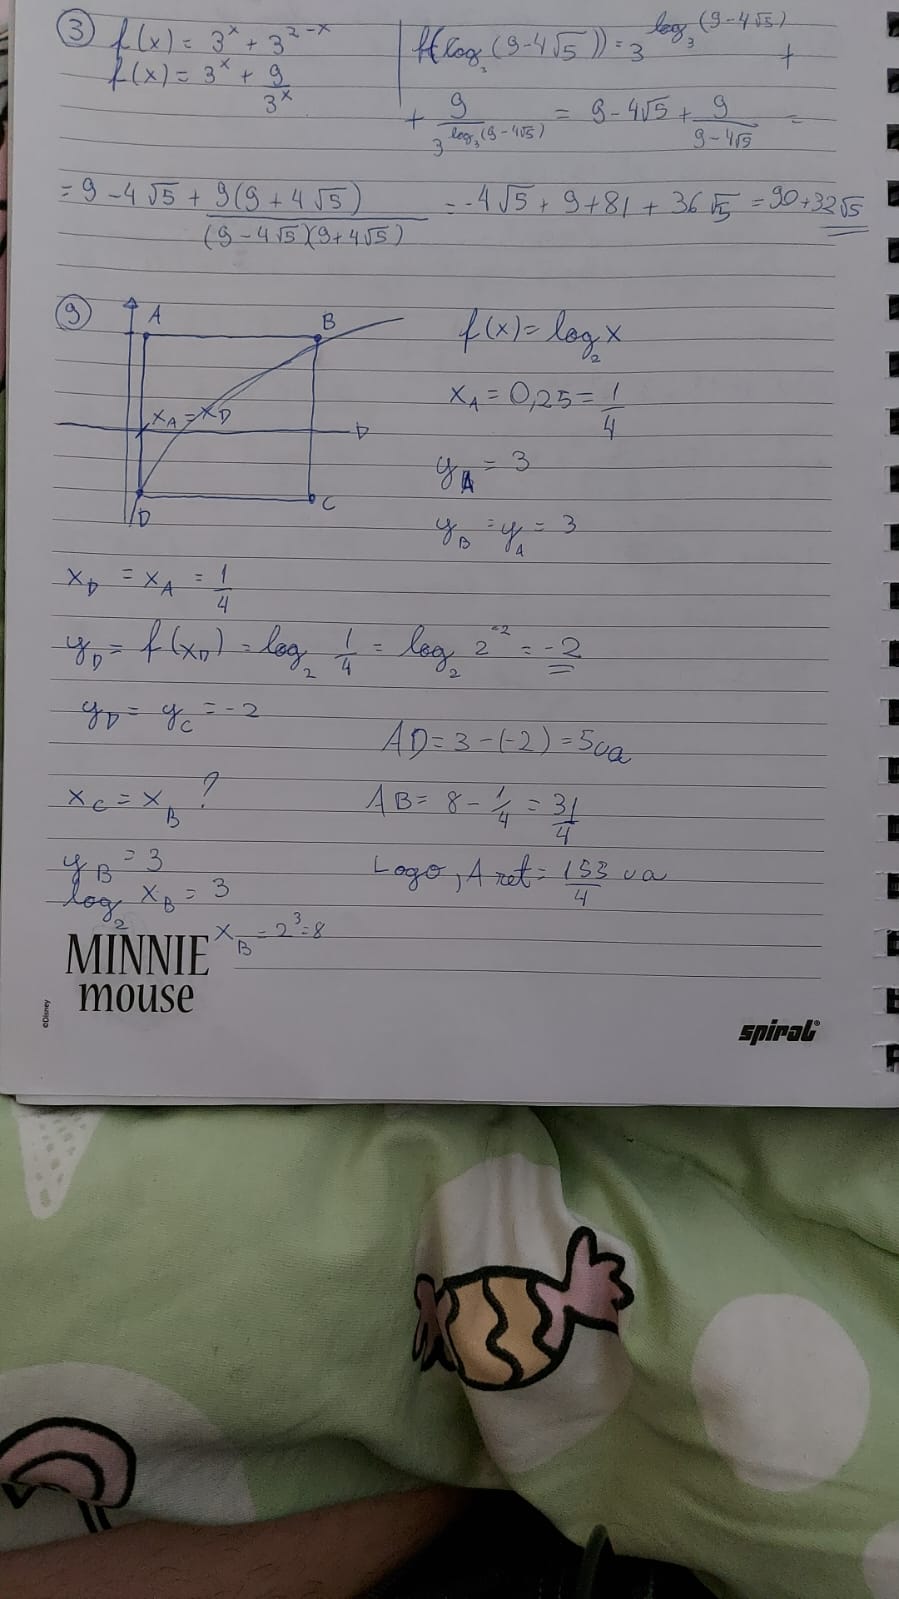 ③ f(x) = 3^x + 3^{2-x}
f(x) = 3^x + 9/3^x
f(log_3 (9-4√5)) = 3^{log_3 (9-4√5)} +
+ 9/3^{log_3 (9-4√5)} = 9-4√5 + 9/(9-4√5) =
= 9-4√5 + 9(9+4√5)/((9-4√5)(9+4√5)) = -4√5 + 9 + 81 + 36√5 = 90+32√5
⑨
A
B
x_A = x_D
D
C
f(x) = log_2 x
x_A = 0,25 = 1/4
y_A = 3
y_B = y_A = 3
x_D = x_A = 1/4
y_D = f(x_D) = log_2 1/4 = log_2 2^{-2} = -2
y_D = y_C = -2
AD = 3-(-2) = 5ua
x_C = x_B ?
AB = 8 - 1/4 = 31/4
y_B = 3
Logo, A ret = 153/4 ua
log_2 x_B = 3
x_B = 2^3 = 8
MINNIE
mouse
©Disney
spiral®